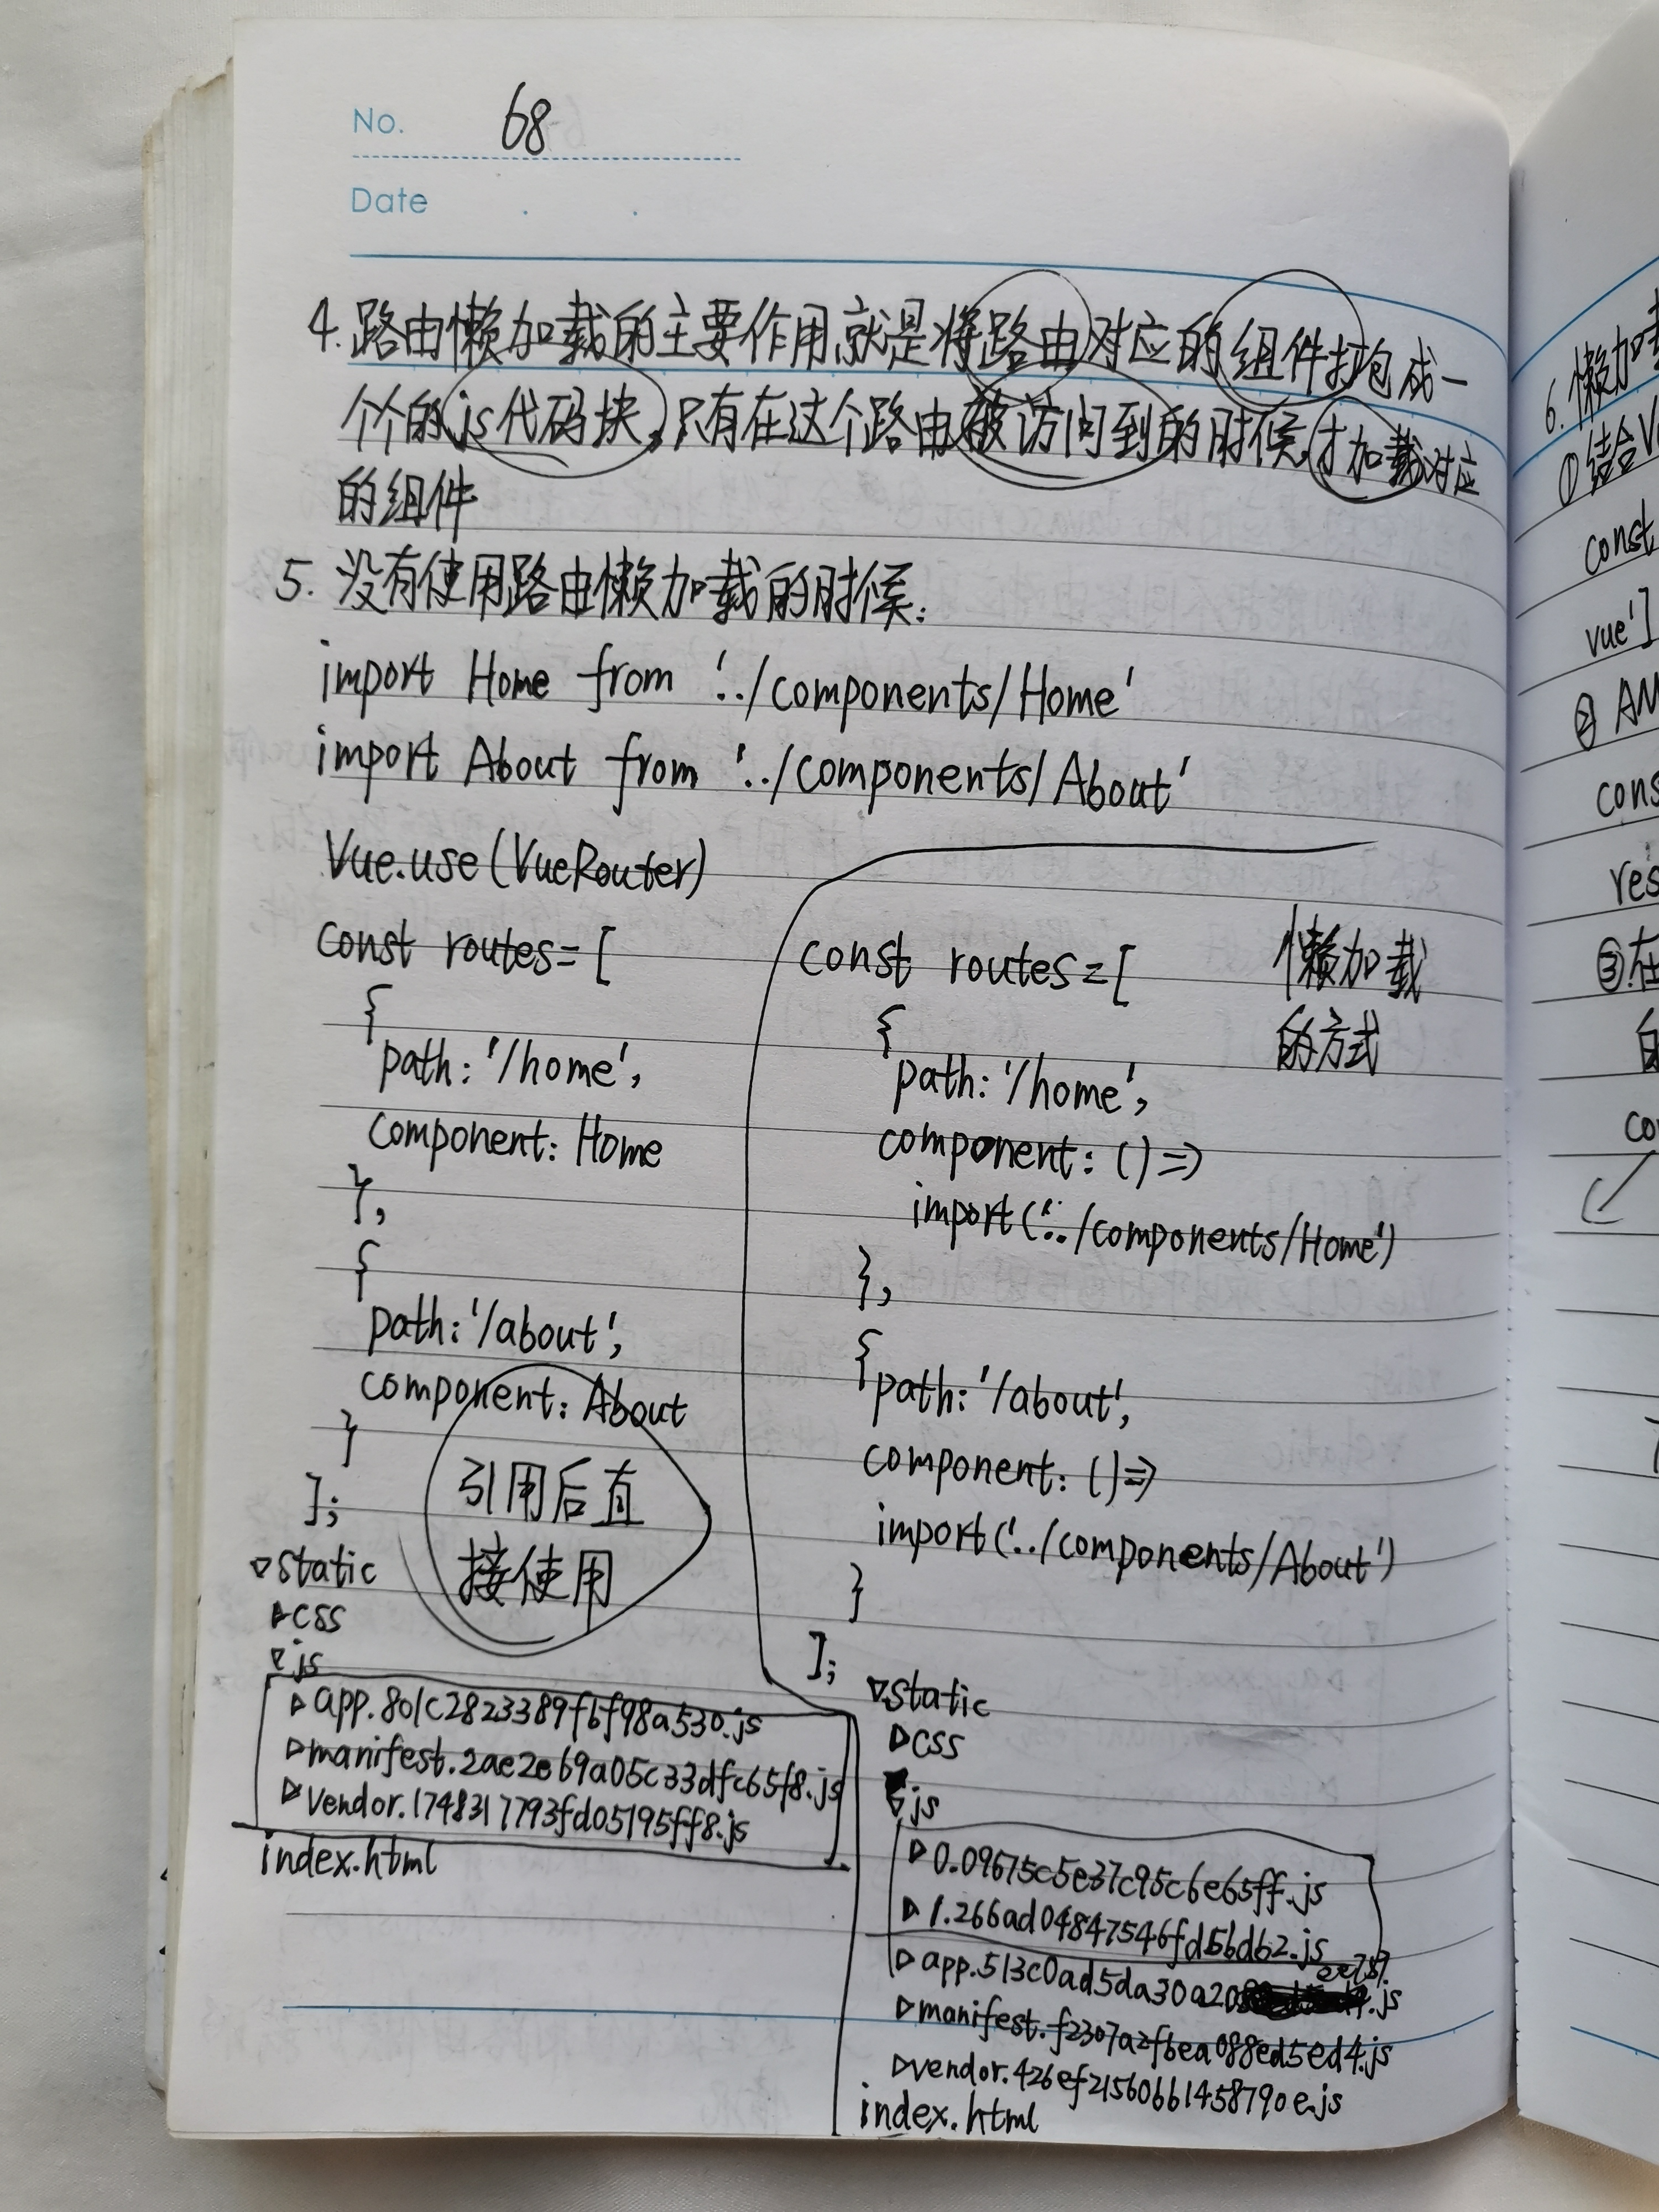 No. 68
Date
4. 路由懒加载的主要作用就是将路由对应的组件打包成一
个个的js代码块,只有在这个路由被访问到的时候,才加载对应
的组件
5. 没有使用路由懒加载的时候:
import Home from '../components/Home'
import About from '../components/About'
Vue.use(VueRouter)
const routes=[
{
path: '/home',
component: Home
},
{
path: '/about',
component: About
}
];
引用后直
接使用
▽static
▷css
▽js
▷app.801c2823389f6f98a530.js
▷manifest.2ae2e69a05c33dfc65f8.js
▷vendor.1748317793fd05195ff8.js
index.html
懒加载
的方式
const routes=[
{
path: '/home',
component: ()=>
import('../components/Home')
},
{
path: '/about',
component: ()=>
import('../components/About')
}
];
▽static
▷css
▽js
▷0.09675c5e37c95c6e65ff.js
▷1.266ad04847546fd5bdb2.js
▷manifest.f2307a2f6ea088ed5ed4.js
▷vendor.426ef21560661458790e.js
index.html
6. 懒加载
①结合V
const
vue']
② AM
cons
res
③在
的
co